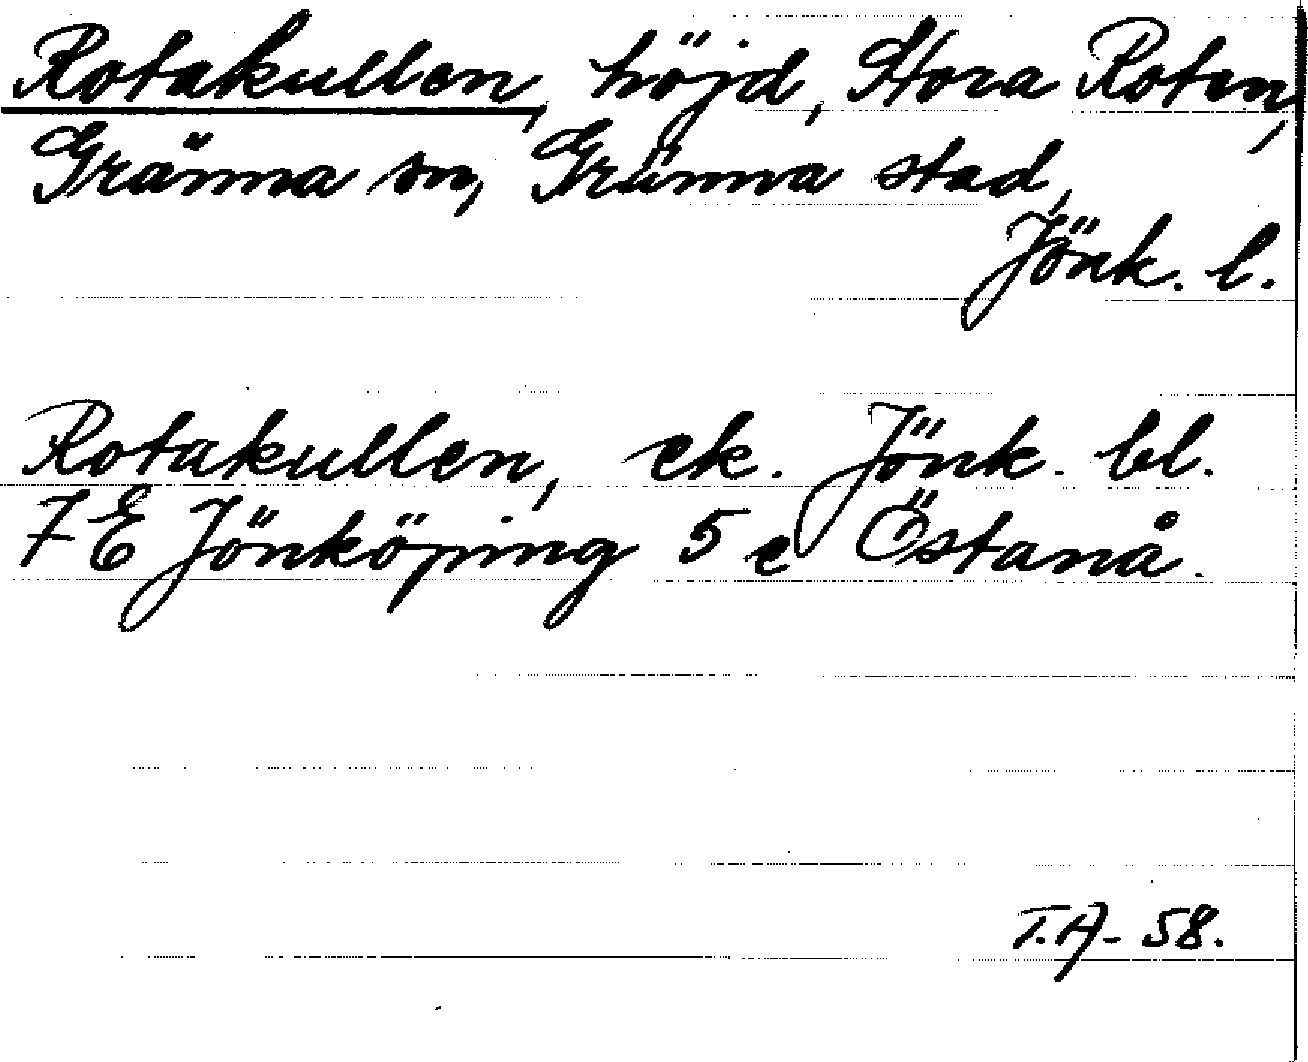 Rotakullen, höjd, Stora Roten,
Gränna sn, Gränna stad,
Jönk. l.
Rotakullen, ek. Jönk. bl.
7 E Jönköping 5 e Östanå.
T.A- 58.